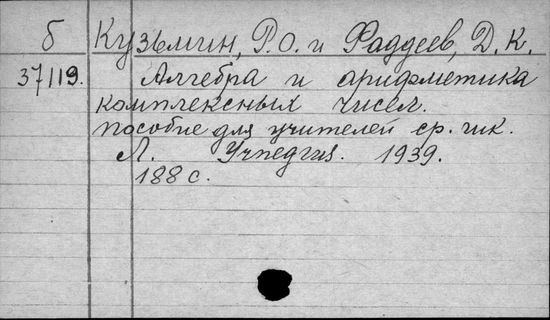 б Кузьмин, Р.О. и Фаддеев, Д.К.
37119. Алгебра и арифметика
комплексных чисел.
пособие для учителей ср. шк.
Л. Учпедгиз. 1939.
188 с.